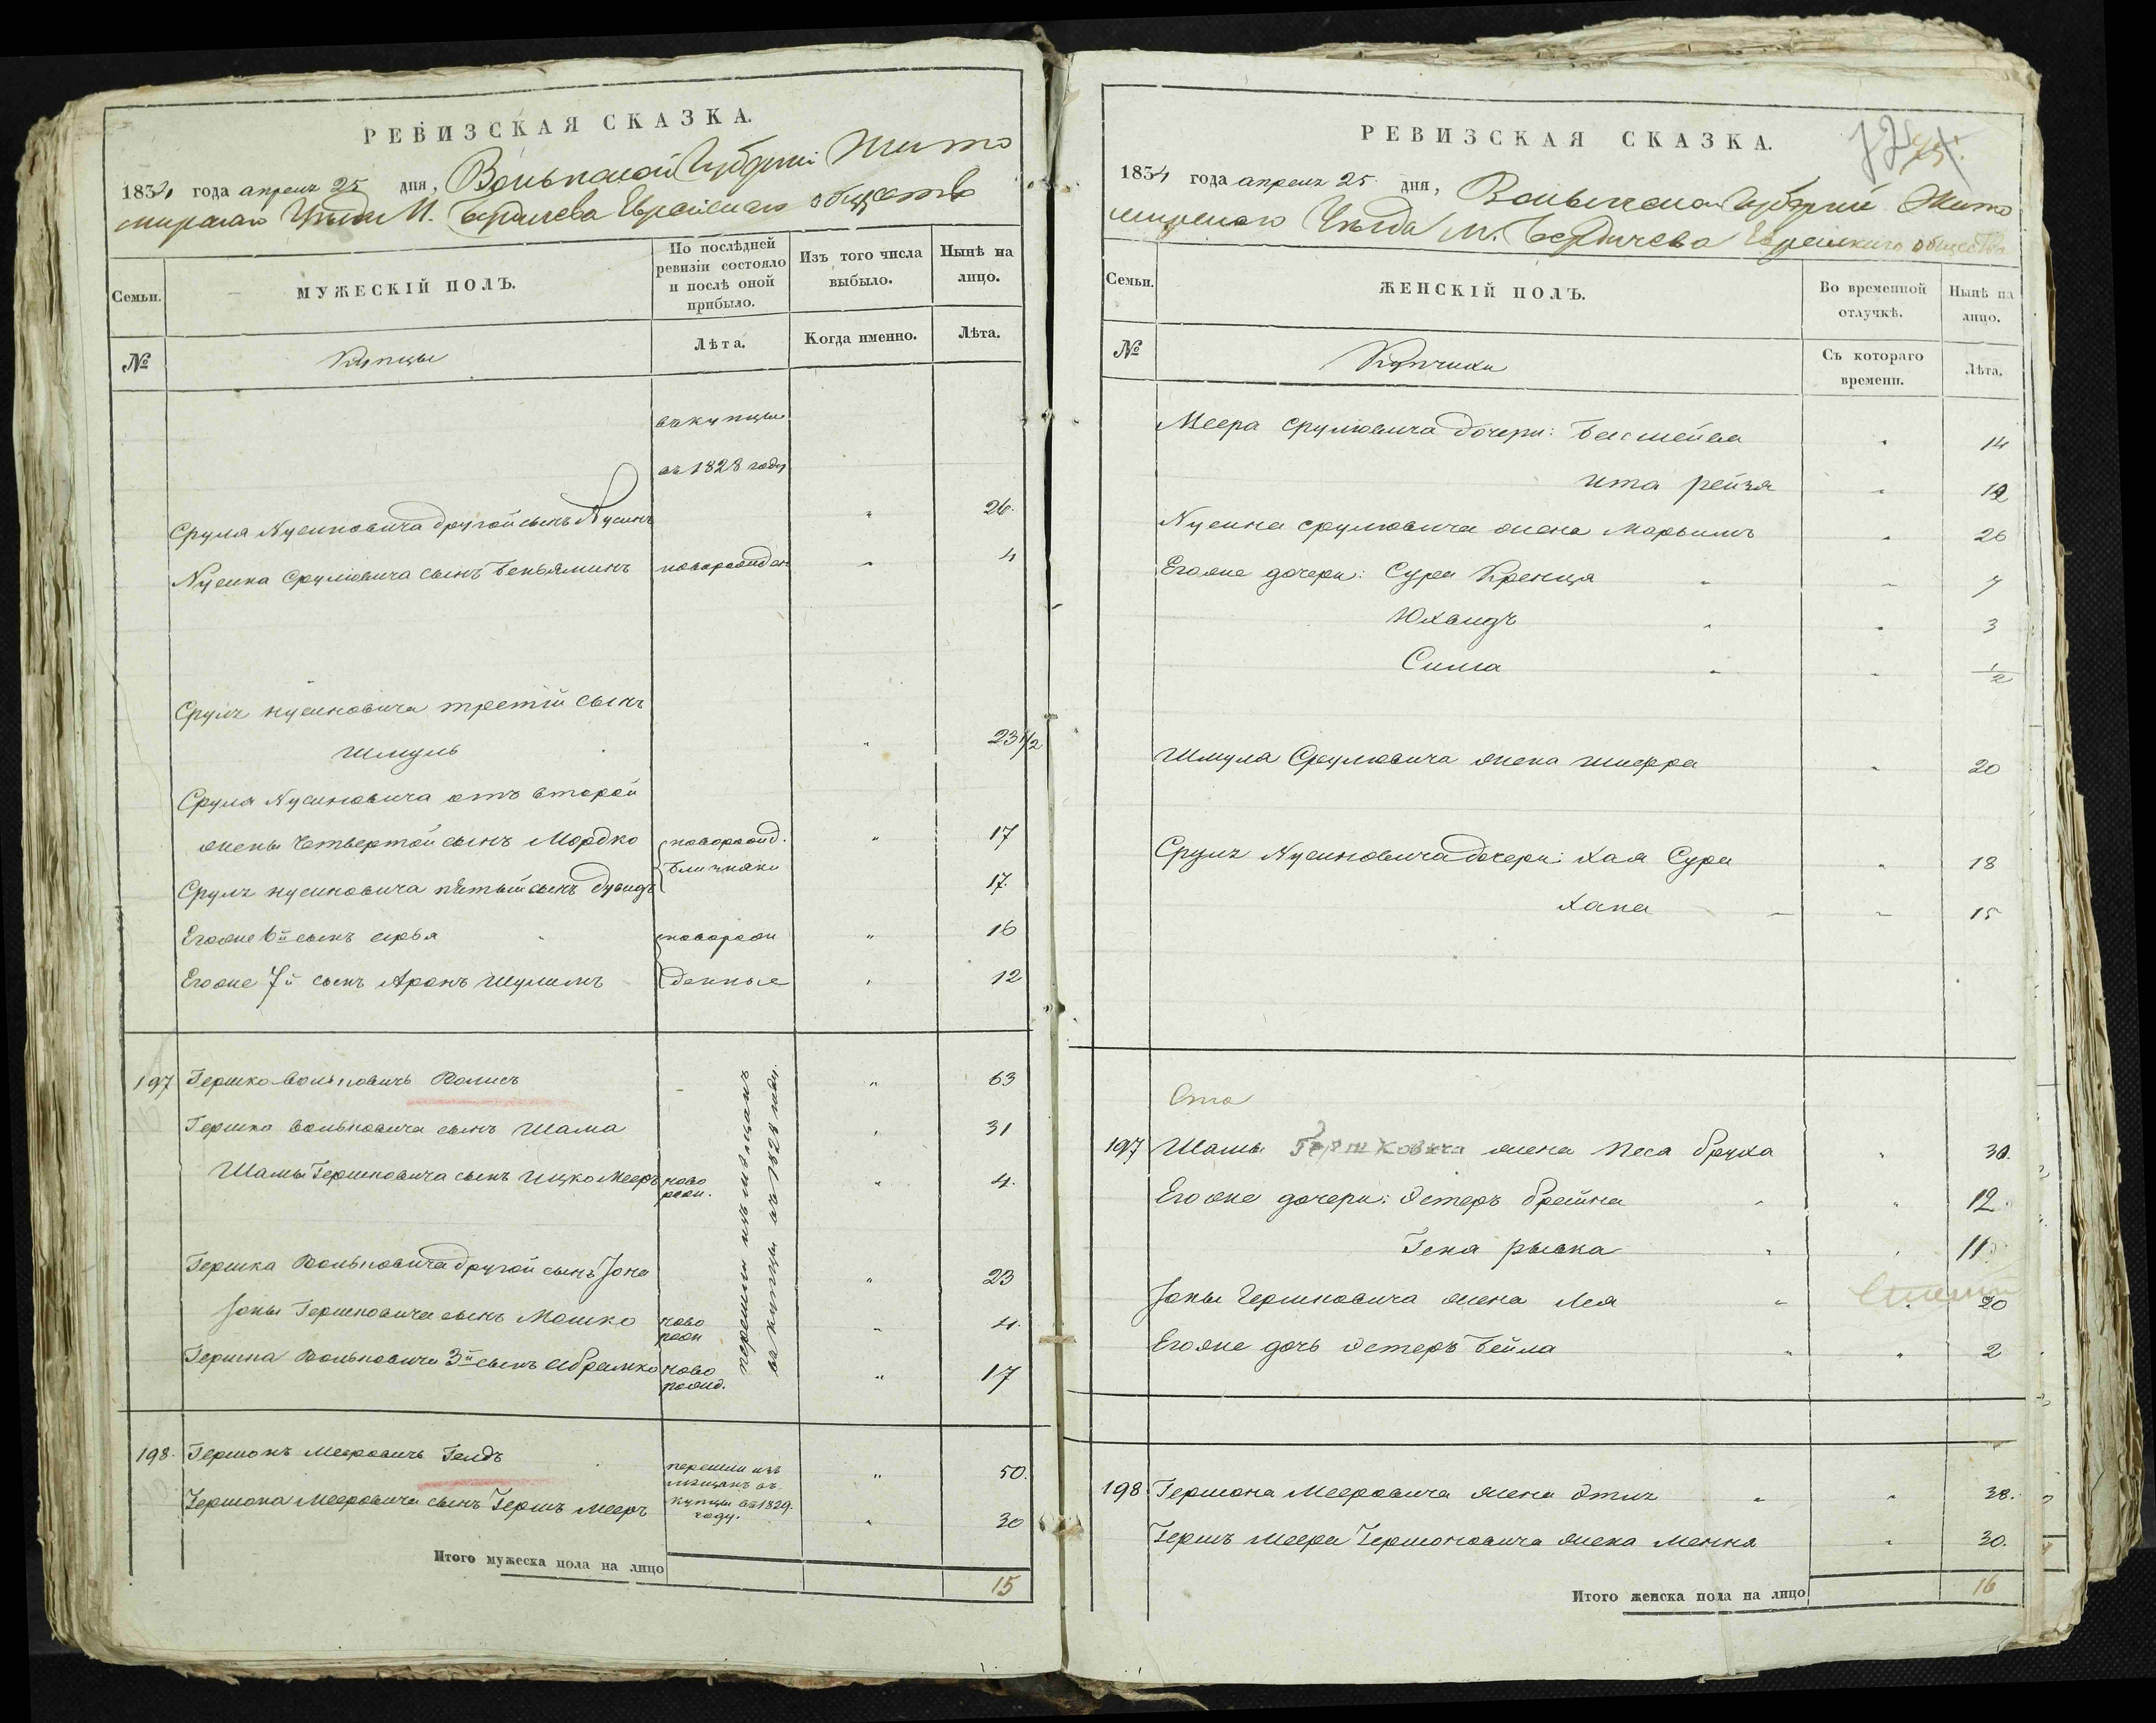 РЕВИЗСКАЯ СКАЗКА.
1834 года апреля 25 дня, Волынской Губернии Жито
мирскаго Уезда М. Бердичева Еврейскаго общества
Семьи.
МУЖЕСКІЙ ПОЛЪ.
По послѣдней ревизіи состояло и послѣ оной прибыло.
Изъ того числа выбыло.
Нынѣ на лицо.
№
Купцы
Лѣта.
Когда именно.
Лѣта.
въ купцы
въ 1828 году
Сруля Нусиновича другой сынъ Нусинъ " 26.
Нусина Срулювича сынъ Беньяминъ новорожден " 4
Сруля Нусиновича третій сынъ
Шмуль " 23 1/2
Сруля Нусиновича отъ второй
жены четвертой сынъ Мордко новорожд. " 17
близнаки
Сруля Нусиновича пятый сынъ Дувидъ 17.
Егоже 6й сынъ Арья новорож " 16
Егоже 7й сынъ Аронъ Шулимъ денные " 12
197 Гершко Вольковичъ " 63
Гершка Вольковича сынъ Шама " 31
Шамы Гершковича сынъ Ицко Мееръ ново рож. " 4.
Гершка Вольковича другой сынъ Іона " 23
Іоны Гершковича сынъ Мошко ново рож " 4.
Гершка Вольковича 3й сынъ Абрамко ново рожд. " 17
перешли изъ мѣщанъ
въ купцы въ 1828 году.
198. Гершонъ Мееровичъ Гелдъ " 50.
перешли изъ
мѣщанъ въ
купцы въ 1829.
году.
Гершона Мееровича сынъ Гершъ Мееръ " 30
Итого мужеска пола на лицо 15
РЕВИЗСКАЯ СКАЗКА.
1834 года апреля 25 дня, Волынской Губерніи Жито
мирскаго Уезда М. Бердичева Еврейскаго общества
Семьи.
ЖЕНСКІЙ ПОЛЪ.
Во временной отлучкѣ.
Нынѣ на лицо.
№
Купчихи
Съ котораго времени.
Лѣта.
Меера Срулювича дочери: Бассшейва " 14
Ита Рейзя " 12
Нусина Срулювича жена Марьимъ " 26
Егоже дочери: Сура Кренця " 7
Юхвидъ " 3
Сима " 1/2
Шмуля Срулювича жена Шифра " 20
Сруля Нусиновича дочери: Хая Сура " 18
Хана " 15
197 Шамы Гершковича жена Песа Бруха " 30.
Егоже дочери: Эстеръ Брейна " 12.
Гена Рывка " 11.
Іоны Гершковича жена Лея " 20
Егоже дочь Эстеръ Бейла " 2
198 Гершона Мееровича жена Этиль " 38.
Гершъ Меера Гершоновича жена Менка " 30.
Итого женска пола на лицо 16